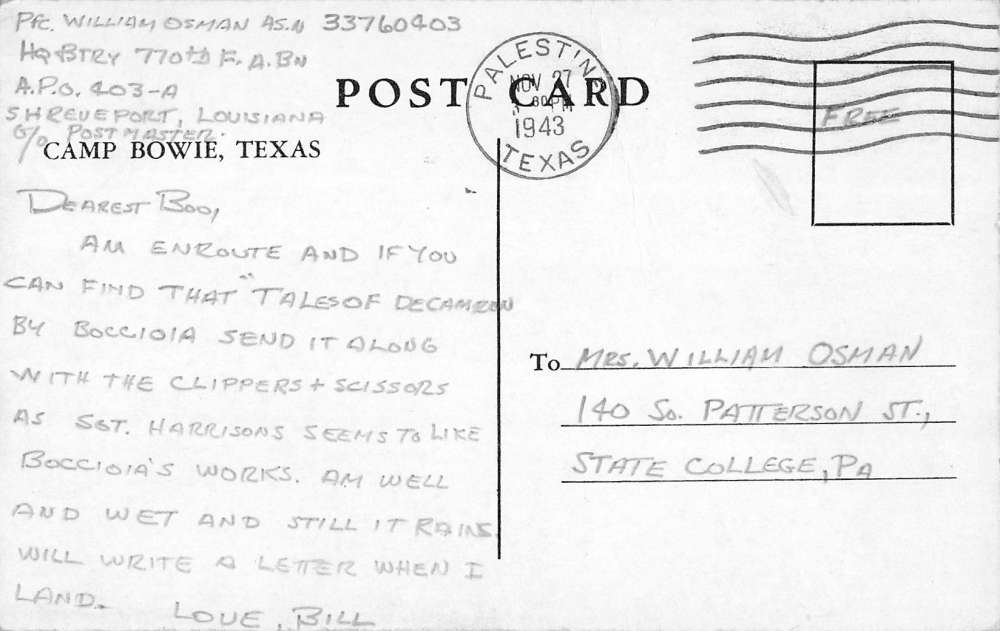 Pfc. WILLIAM OSMAN AS.N 33760403
HQ BTRY 770th F.A.BN
A.P.O. 403-A
SHREVEPORT, LOUISIANA
C/o POSTMASTER.
CAMP BOWIE, TEXAS
POST CARD
PALESTINE
NOV 27
1943
TEXAS
FREE
DEAREST BOO,
AM ENROUTE AND IF YOU
CAN FIND THAT "TALES OF DECAMERON
BY BOCCIOIA SEND IT ALONG
WITH THE CLIPPERS + SCISSORS
AS SGT. HARRISONS SEEMS TO LIKE
BOCCIOIA'S WORKS. AM WELL
AND WET AND STILL IT RAINS
WILL WRITE A LETTER WHEN I
LAND.
LOVE, BILL
To MRS. WILLIAM OSMAN
140 SO. PATTERSON ST.,
STATE COLLEGE, PA